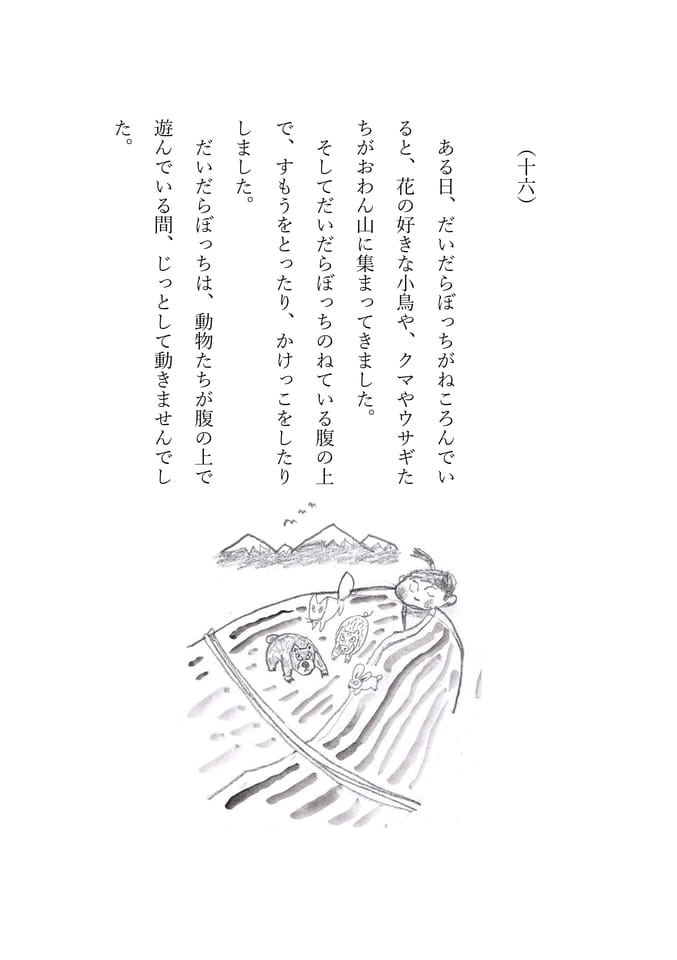 （十六）
ある日、だいだらぼっちがねころんでい
ると、花の好きな小鳥や、クマやウサギた
ちがおわん山に集まってきました。
そしてだいだらぼっちのねている腹の上
で、すもうをとったり、かけっこをしたり
しました。
だいだらぼっちは、動物たちが腹の上で
遊んでいる間、じっとして動きませんでし
た。